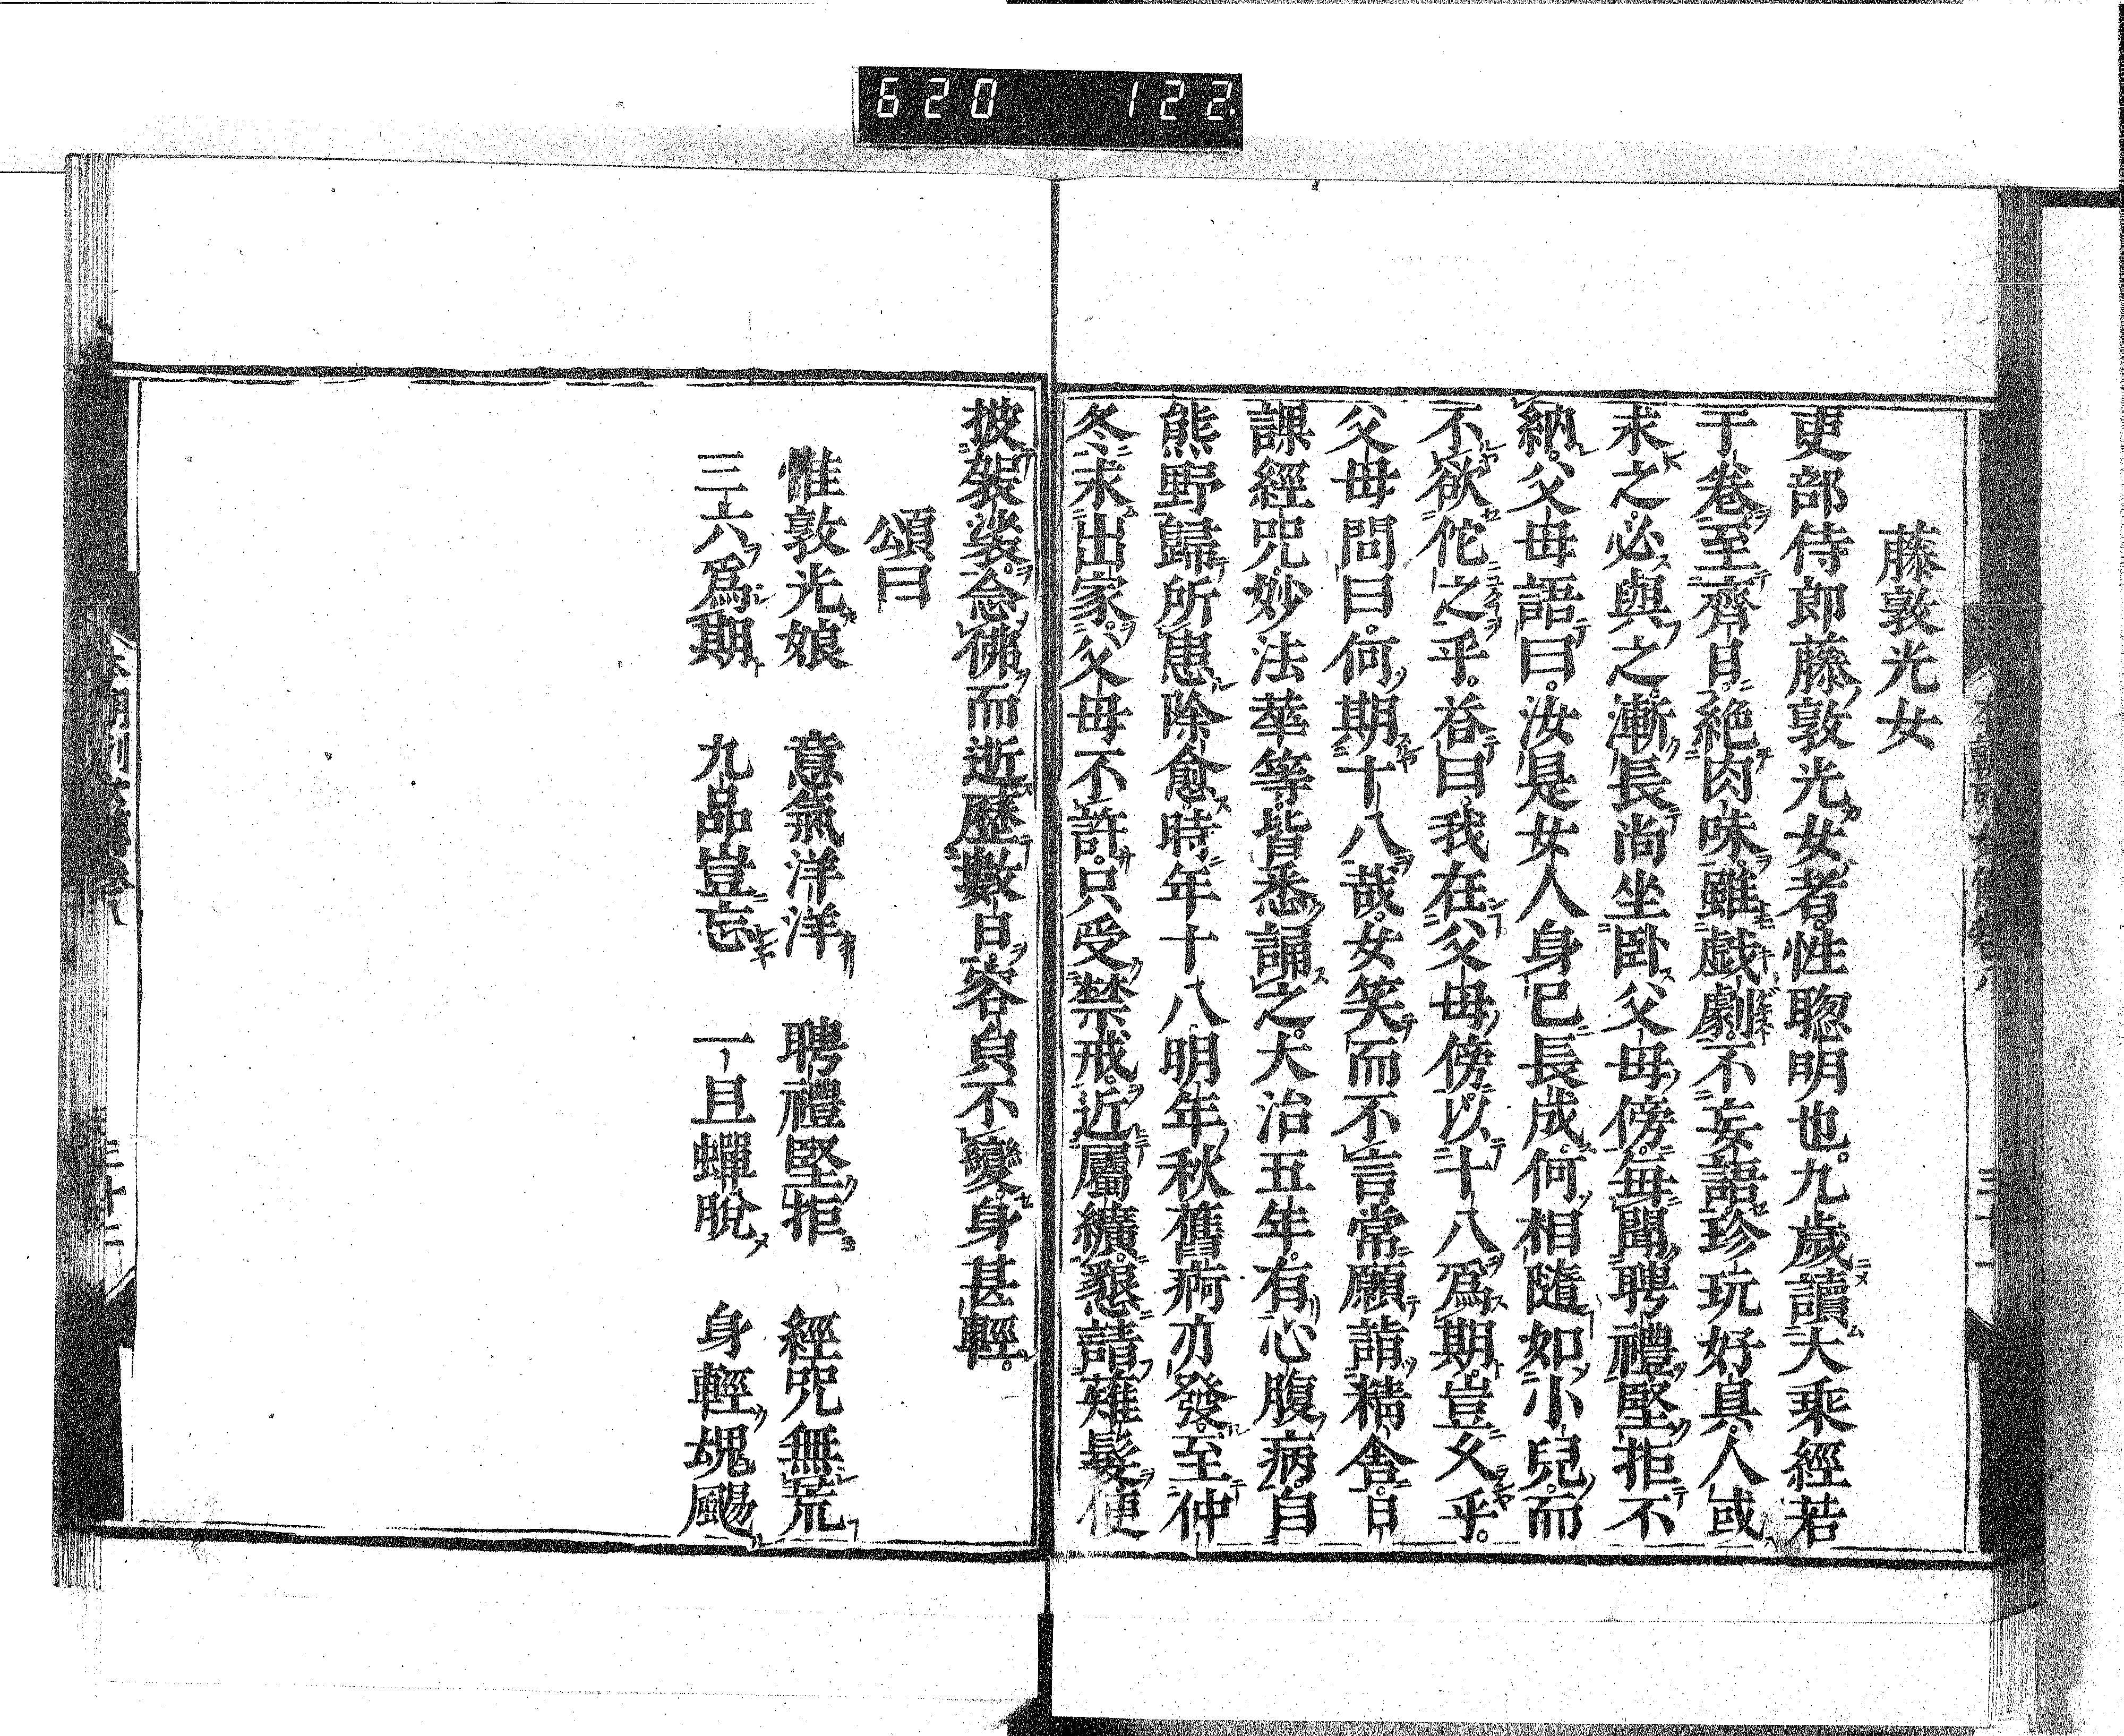 620 122
藤敦光女
吏部侍郎藤敦光女者。性聰明也。九歲讀大乘經若
干卷。至齊日。絕肉味。雖戲劇。不妄語。珍玩好具。人或
求之。必與之。漸長。尚坐臥父母傍。每聞聘禮。堅拒不
納。父母語曰。汝是女人身。已長成。何相隨如小兒。而
不欲佗之乎。答曰。我在父母傍。以十八爲期。豈久乎。
父母問曰。何期十八哉。女笑而不言。常願詣精舍。日
課經咒。妙法華等。皆悉誦之。大治五年。有心腹病。自
熊野歸。所患除愈。時年十八。明年秋舊病亦發。至仲
冬求出家。父母不許。只受禁戒。近屬纊。懇請薙髮。便
披袈裟。念佛而逝。歷數日。容貌不變。身甚輕。
頌曰
惟敦光娘 意氣洋洋 聘禮堅拒 經咒無荒
三六爲期 九品豈忘 一旦蟬脫 身輕魂颺
三十二